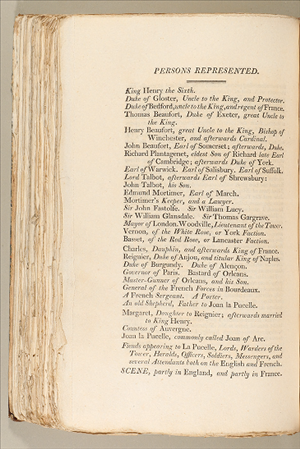 PERSONS REPRESENTED.
King Henry the Sixth.
Duke of Gloster, Uncle to the King, and Protector.
Duke of Bedford, uncle to the King, and regent of France.
Thomas Beaufort, Duke of Exeter, great Uncle to
the King.
Henry Beaufort, great Uncle to the King, Bishop of
Winchester, and afterwards Cardinal.
John Beaufort, Earl of Somerset; afterwards, Duke.
Richard Plantagenet, eldest Son of Richard late Earl
of Cambridge; afterwards Duke of York.
Earl of Warwick. Earl of Salisbury. Earl of Suffolk.
Lord Talbot, afterwards Earl of Shrewsbury:
John Talbot, his Son.
Edmund Mortimer, Earl of March.
Mortimer's Keeper, and a Lawyer.
Sir John Fastolfe. Sir William Lucy.
Sir William Glansdale. Sir Thomas Gargrave.
Mayor of London. Woodvile, Lieutenant of the Tower.
Vernon, of the White Rose, or York Faction.
Basset, of the Red Rose, or Lancaster Faction.
Charles, Dauphin, and afterwards King of France.
Reignier, Duke of Anjou, and titular King of Naples.
Duke of Burgundy. Duke of Alençon.
Governor of Paris. Bastard of Orleans.
Master-Gunner of Orleans, and his Son.
General of the French Forces in Bourdeaux.
A French Sergeant. A Porter.
An old Shepherd, Father to Joan la Pucelle.
Margaret, Daughter to Reignier; afterwards married
to King Henry.
Countess of Auvergne.
Joan la Pucelle, commonly called Joan of Arc.
Fiends appearing to La Pucelle, Lords, Warders of the
Tower, Heralds, Officers, Soldiers, Messengers, and
several Attendants both on the English and French.
SCENE, partly in England, and partly in France.